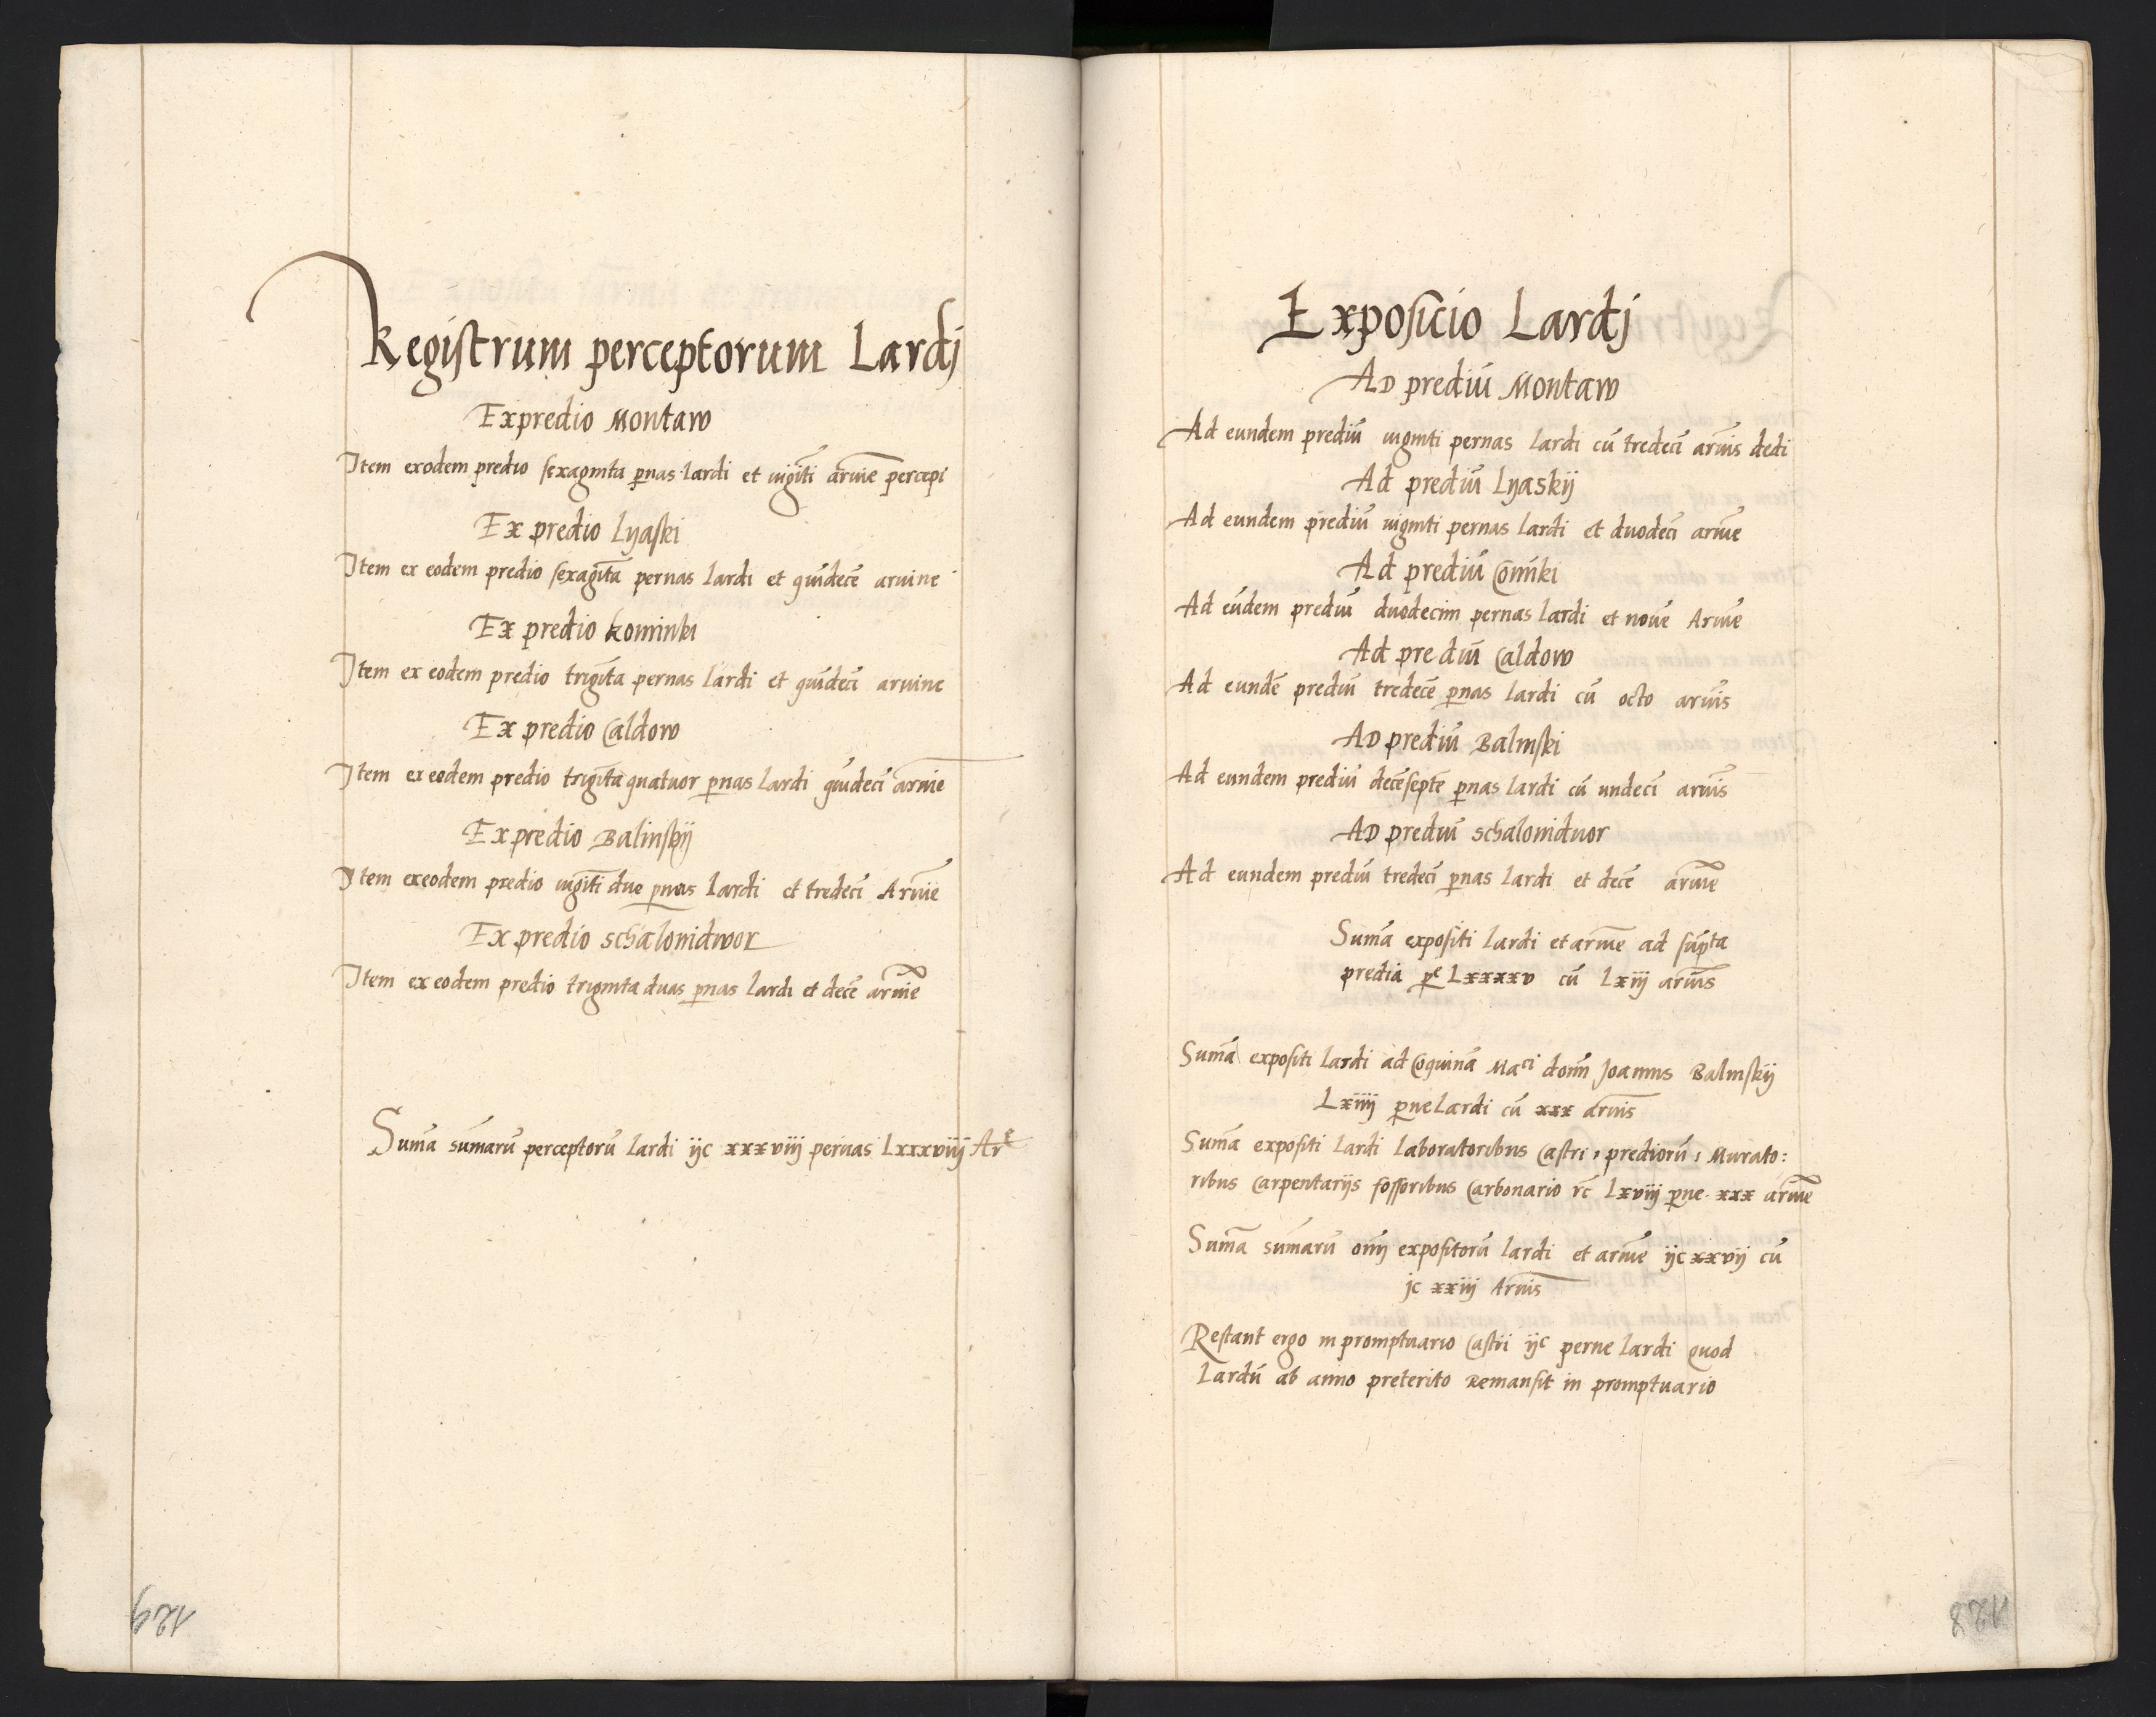 Registrum perceptorum Lardj
Ex predio Montaw
Item exodem predio sexaginta pnas lardi et vigīti arvīe percepi
Ex predio Lyaski
Item ex eodem predio sexagīta pernas lardi et quīdecē arvine
Ex predio kominki
Item ex eodem predio trigīta pernas lardi et quīdecī arvine
Ex predio Caldow
Item ex eodem predio trigīta quatuor pnas lardi quīdecī arvīe
Ex predio Balinskij
Item ex eodem predio vigīti due pnas lardi et tredecī Arvīe
Ex predio schalonidwor
Item ex eodem predio triginta duas pnas lardi et decē arvīe
Sumā sūmarū perceptorū lardi ijc xxxviij pernas Lxxxviij Are
129
Exposicio Lardj
AD prediū Montaw
Ad eundem prediū viginti pernas lardi cū tredecī arvīs dedi
Ad prediū Lyaskij
Ad eundem prediū viginti pernas lardi et duodecī arvīe
Ad prediū Comīki
Ad eūdem prediū duodecim pernas lardi et novē Arvīe
Ad prediū Caldow
Ad eundē prediū tredecē pnas lardi cū octo arvīs
AD prediū Balinski
Ad eundem prediū decēseptē pnas lardi cū undecī arvīs
AD prediū schalonidvor
Ad eundem prediū tredecī pnas lardi et decē arvīe
Sumā expositi lardi et arvīe ad sūpta
predia pe Lxxxxv cū Lxiij arvīs
Sumā expositi lardi ad Coquinā Maci domī Joannis Balinskij
Lxiiij pne lardi cū xxx arvīs
Sumā expositi lardi Laboratoribus Castri, prediorū, Murato:
ribus Carpentarijs fossoribus Carbonario rc̄ Lxviij pne xxx arvīe
Sumā sūmarū om̄ij expositorū lardi et arvīe ijc xxvij cū
jc xxiij Arvīs
Restant ergo in promptuario Castri ijc perne lardi quod
lardū ab anno preterito Remansit in promptuario
128